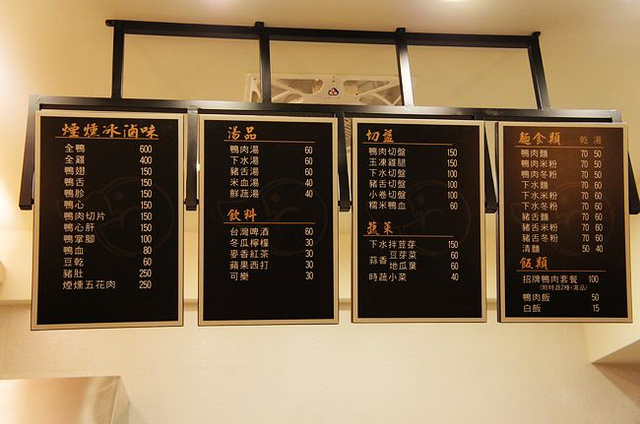 煙燻冰滷味
全鴨 600
全雞 400
鴨翅 150
鴨舌 150
鴨胗 150
鴨心 150
鴨肉切片 150
鴨心肝 150
鴨掌腳 100
鴨血 80
豆乾 60
豬肚 250
煙燻五花肉 250
湯品
鴨肉湯 60
下水湯 60
豬舌湯 60
米血湯 40
鮮蔬湯 40
飲料
台灣啤酒 60
冬瓜檸檬 30
麥香紅茶 30
蘋果西打 30
可樂 30
切盤
鴨肉切盤 150
玉凍雞腿 150
下水切盤 100
豬舌切盤 100
小卷切盤 100
糯米鴨血 60
蔬菜
下水拌荳芽 150
蒜香 豆芽菜 60
地瓜葉 60
時蔬小菜 40
麵食類 乾 湯
鴨肉麵 70 50
鴨肉米粉 70 50
鴨肉冬粉 70 50
下水麵 70 60
下水米粉 70 60
下水冬粉 70 60
豬舌麵 70 60
豬舌米粉 70 60
豬舌冬粉 70 60
清麵 50 40
飯類
招牌鴨肉套餐 100
(附時蔬2種+湯品)
鴨肉飯 50
白飯 15